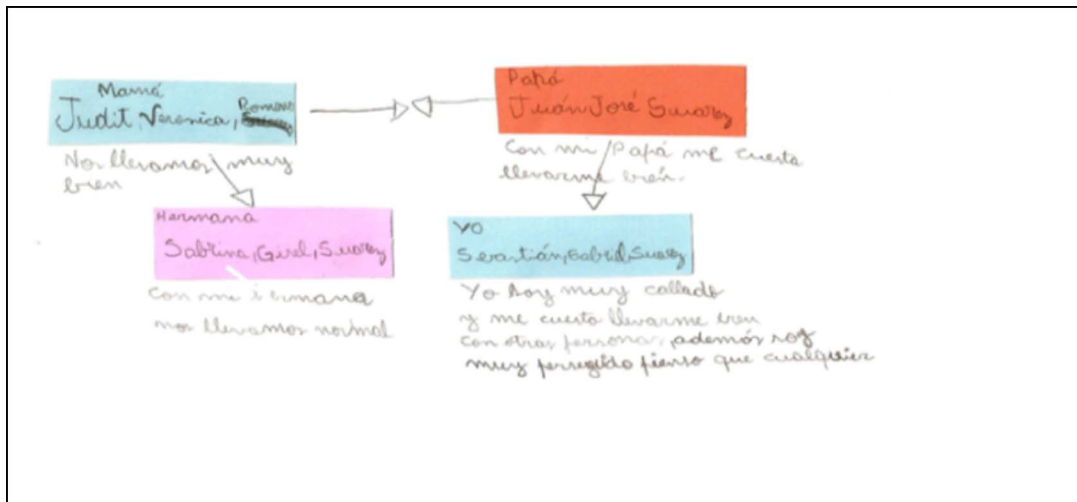 Mamá
Judit, Veronica, Romano
Nos llevamos muy
bien
Papá
Juán José Suarez
Con mi Papá me cuesta
llevarme bien.
Hermana
Sabrina, Gisel, Suarez
con mi hermana
nos llevamos normal
YO
Sebastián, Gabriel, Suarez
Yo soy muy callado
y me cuesta llevarme bien
con otras personas, además soy
muy persegido pienso que cualquier